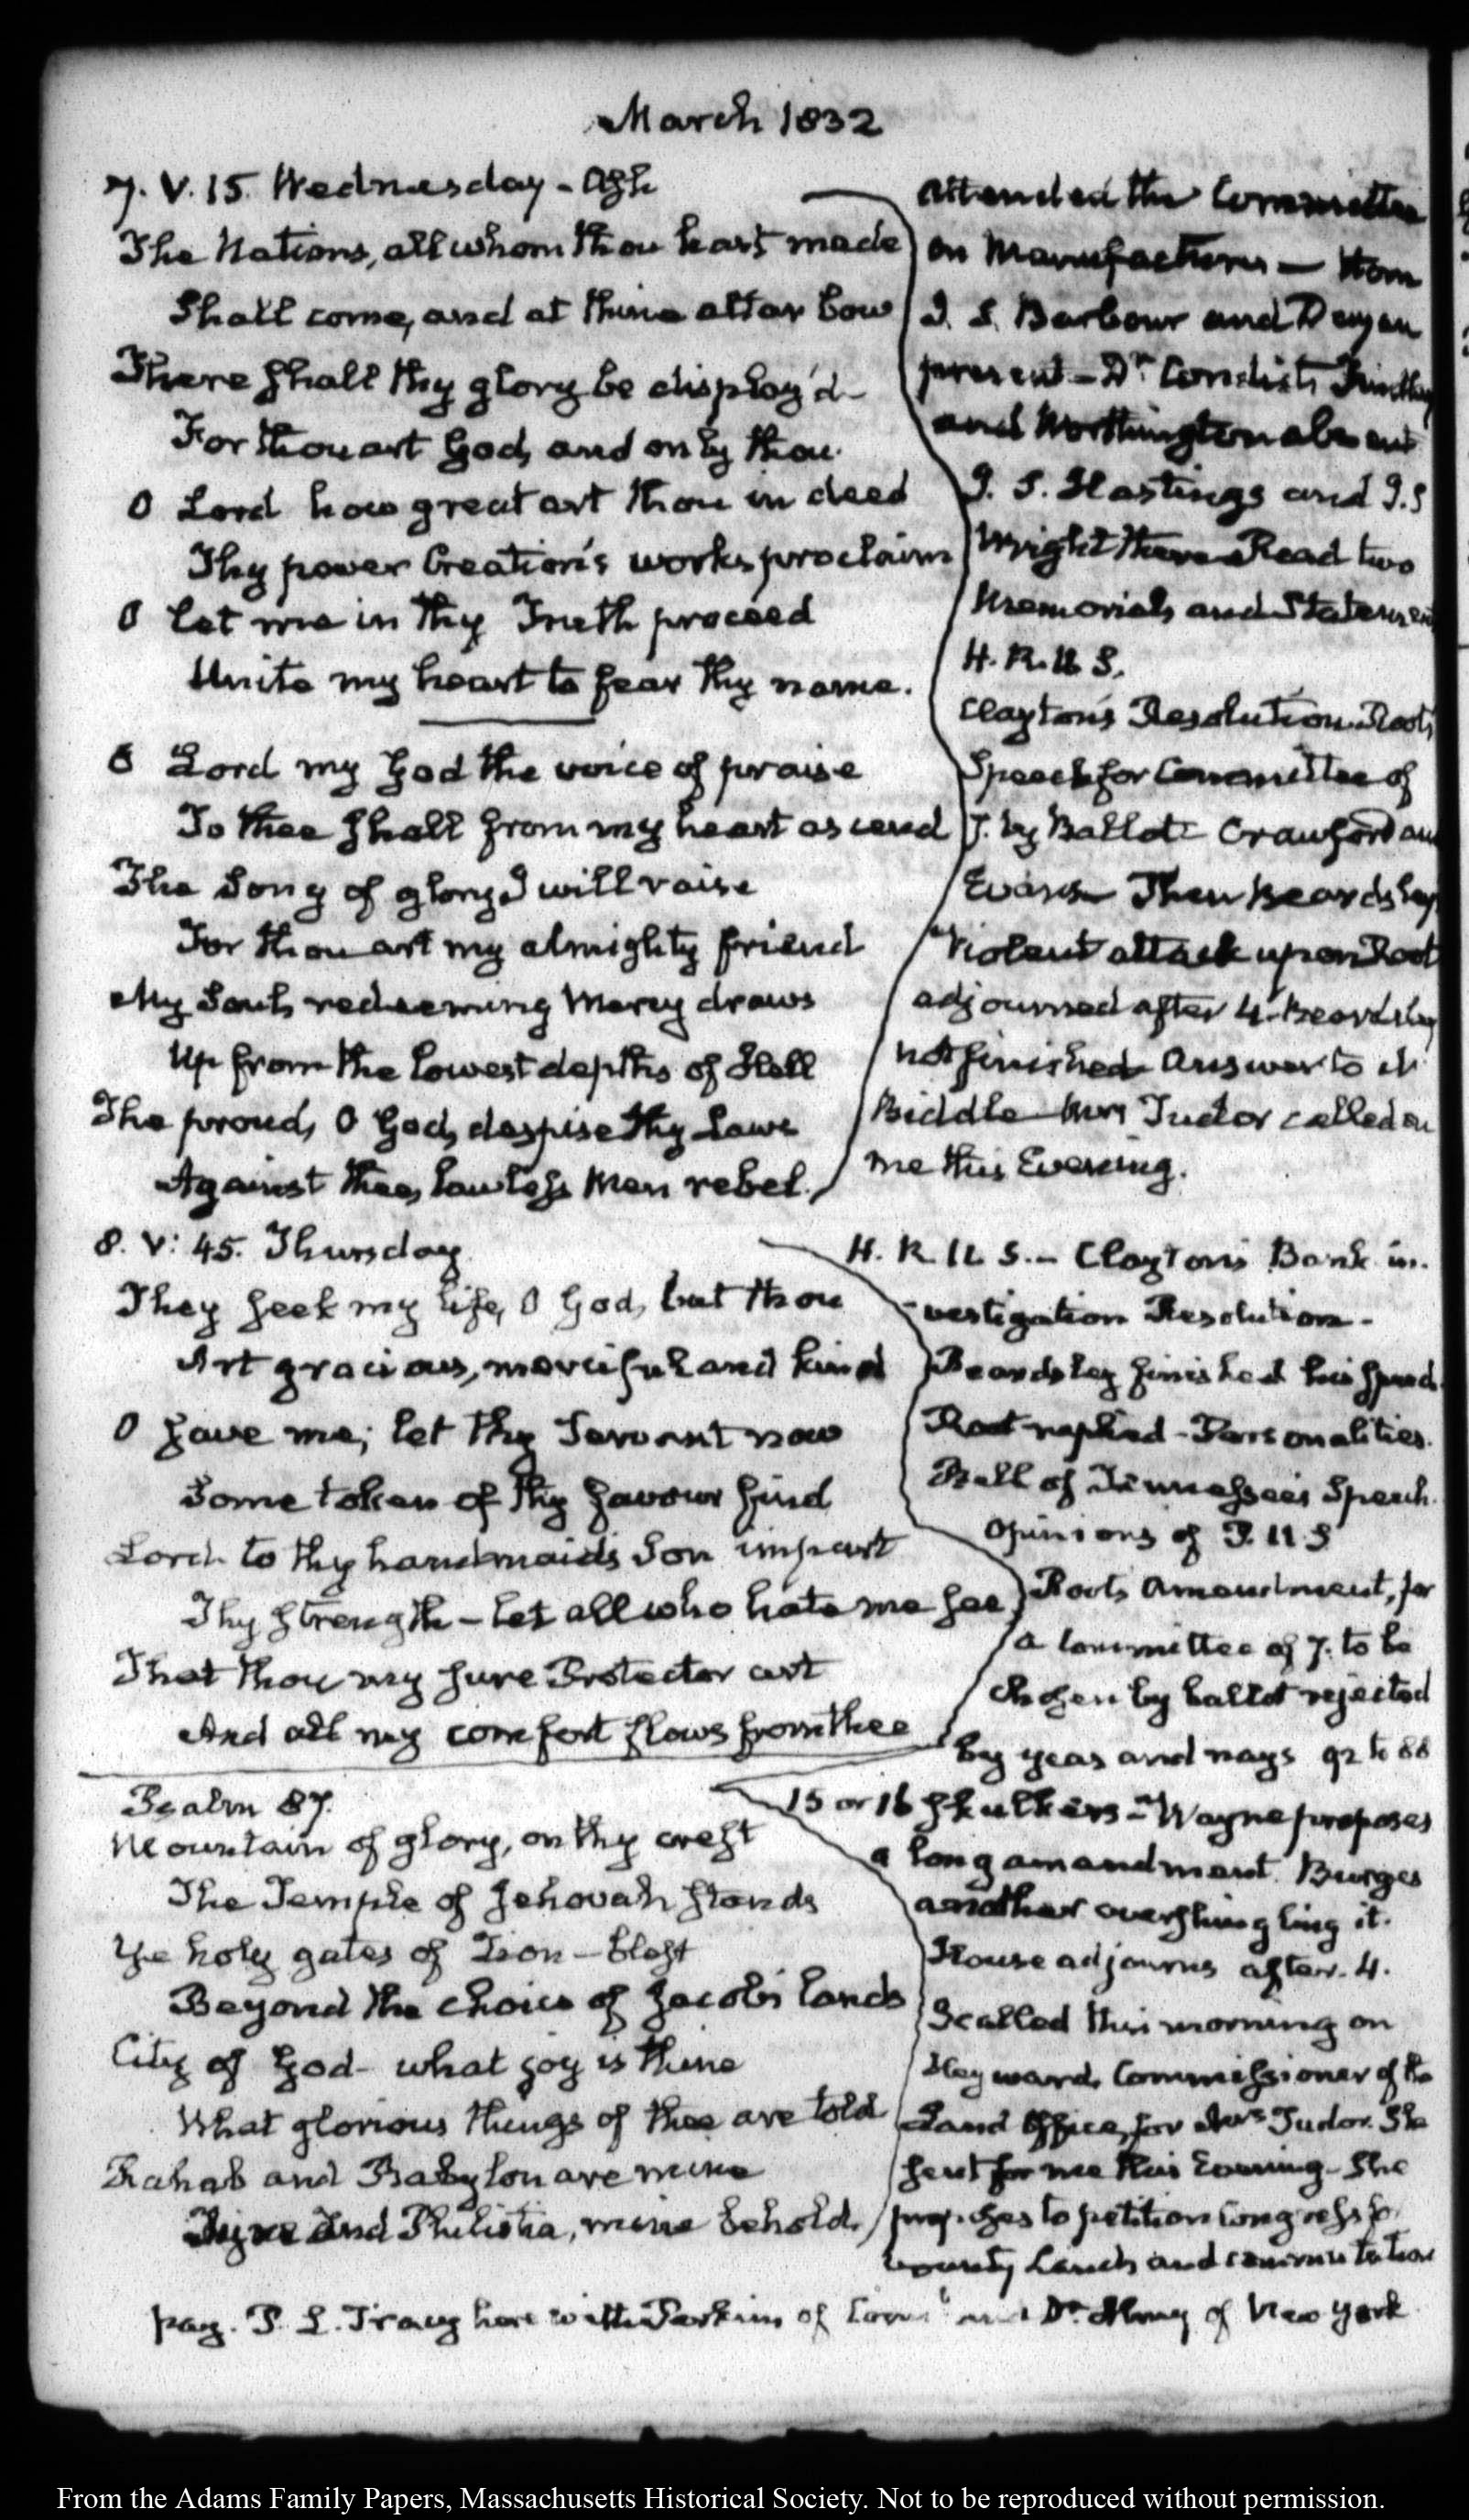 March 1832
7. V. 15. Wednesday - Ash
The Nations, all whom thou hast made
Shall come, and at thine altar bow
There shall thy glory be display'd
For thou art God, and only thou.
O Lord how great art thou in deed
Thy power Creation's works proclaim
O let me in thy Truth proceed
Unite my heart to fear thy name.
O Lord my God the voice of praise
To thee shall from my heart ascend
The Song of glory I will raise
For thou art my almighty friend
My Soul, redeeming Mercy draws
Up from the lowest depths of Hell
The proud, O God, despise thy Laws
Against thee, lawless Men rebel.
attended the Committee
on Manufactures — Horn
J. S. Barbour and Dayan
present - Dr. Condict, Findlay
and Worthington absent
J. S. Hastings and J. S
Wright there Read two
Memorials and Statement
H. R. U S.
Clayton's Resolution. Root's
Speech for Committee of
7. by Ballot Crawford and
Evans Then Beardsley
Violent attack upon Root
adjourned after 4. Beardsley
not finished Answer to
Biddle Mrs Tudor called on
me this Evening.
8. V: 45. Thursday
They seek my life, O God, but thou
Art gracious, merciful and kind
O save me; let thy Servant now
Some token of thy favour find
Lord to thy handmaid's Son impart
Thy strength - let all who hate me see
That thou my sure Protector art
And all my comfort flows from thee
H. R. U S. - Clayton's Bank in-
-vestigation Resolution -
Beardsley finished his speech.
Root replied - Personalities.
Bell of Tennessee's Speech.
Opinions of P. U S
Root's Amendment, for
a Committee of 7. to be
chosen by ballot rejected
by yeas and nays 92 to 88
Psalm 87.
Mountain of glory, on thy crest
The Temple of Jehovah stands
Ye holy gates of Zion - blest
Beyond the choice of Jacob's lands
City of God - what joy is thine
What glorious things of thee are told
Rahab and Babylon are mine
Tyre And Philistia, mine behold.
15 or 16 skulkers - Wayne proposes
a long amandment. Burges
another overshingling it.
House adjourns after. 4.
I called this morning on
Hayward, Commissioner of the
Land Office, for Mrs Tudor. She
sent for me this Evening - She
proposes to petition Congress for
bounty Lands and commutation
pay. P. L. Tracy here with Perkins of and Dr. of New York